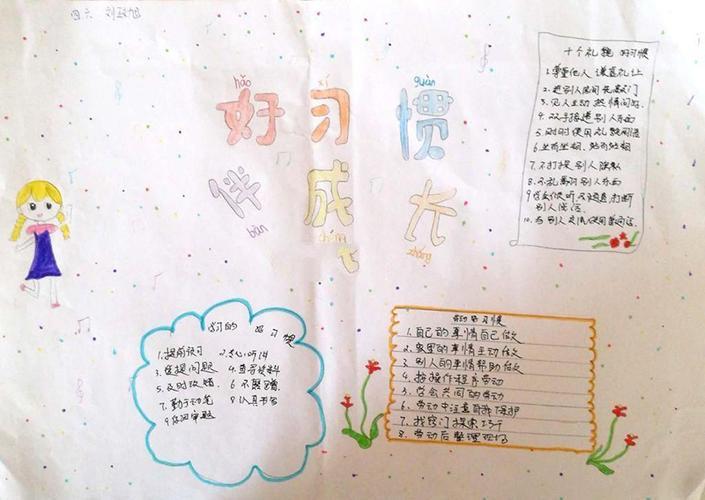 四六 刘政旭
hǎo xí guàn
好习惯
伴成长
bàn chéng zhǎng
十个礼貌好习惯
1.尊重他人 谦恭礼让
2.进别人房间先敲门
3.见人主动热情问好
4.双手接递别人东西
5.时时使用礼貌用语
6.坐有坐相、站有站相
7.不打探别人隐私
8.不乱翻别人东西
9.学会倾听不随意打断
别人说话
10.与别人交流使用普通话
学习的好习惯
1.提前预习 2.专心听讲
3.掌握问题 4.查看资料
5.及时改错 6.不
7.勤于动笔 8.认真书写
9.仔细审题
劳动好习惯
1.自己的事情自己做
2.家里的事情主动做
3.别人的事情帮助做
4.按操作程序劳动
5.学会共同的劳动
6.劳动中注意自我保护
7.找窍门探索巧干
8.劳动后整理现场